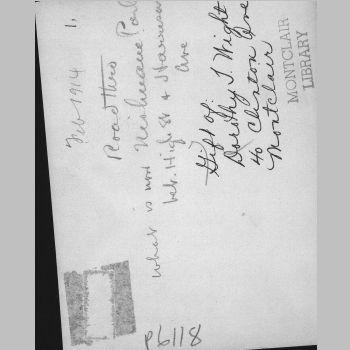 Feb 1914 1,
Road thro
what is now Nishuane Park
bet. High St & Harrison
Ave
Gift of:
Dorothy T. Wright
40 Clinton Ave
Montclair
MONTCLAIR
LIBRARY
P6118